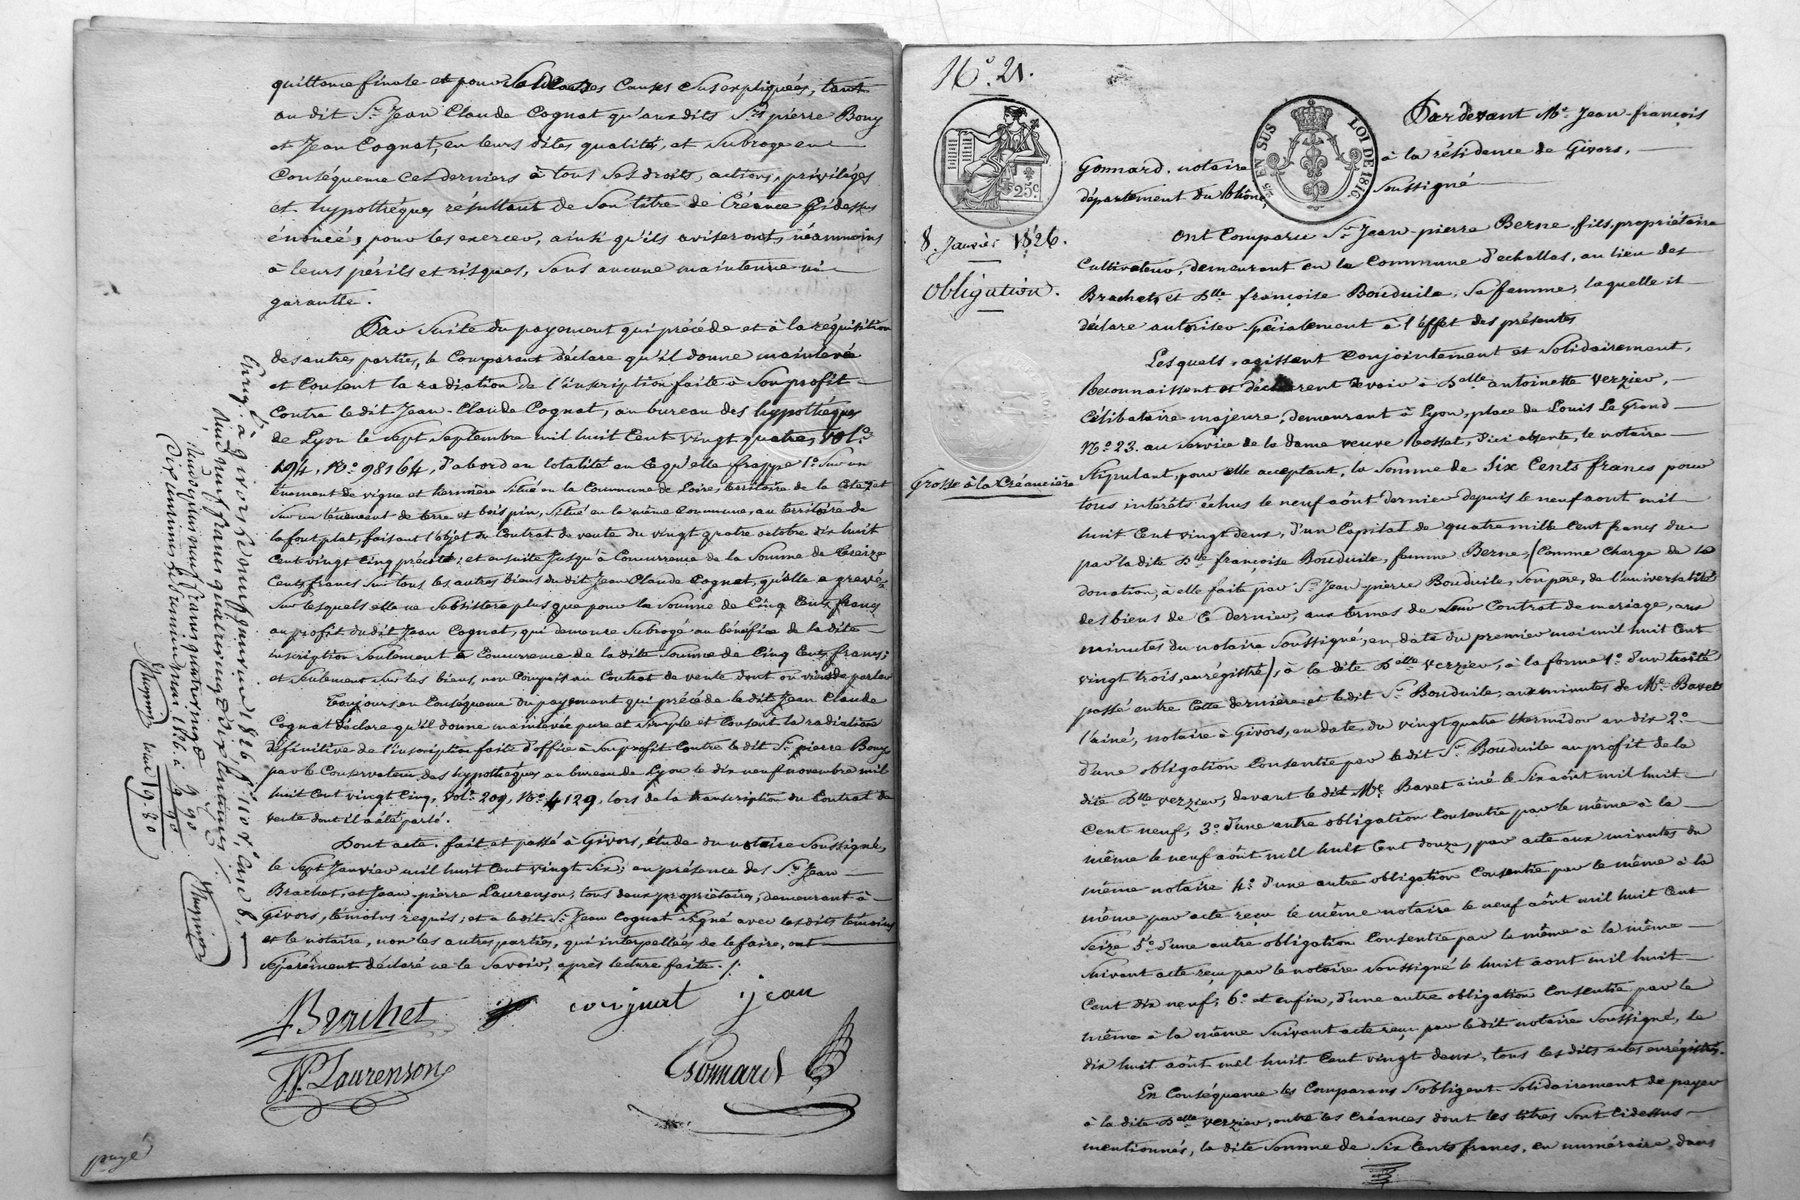 quittance finale et pour les causes susexpliquées, tant
au dit Sr. Jean Claude Cognat qu'aux dits Srs pierre Bony
et Jean Cognat, en leurs dites qualités, et subroge en
Conséquence ces derniers à tous ses droits, actions, privilèges
et hypothèques résultant de son titre de Créance cidessus
énoncé, pour les exercer, ainsi qu'ils aviseront, néanmoins
à leurs périls et risques, sans aucune maintenue ni
garantie.
Par suite du payement qui précéde et à la réquisition
des autres parties, le Comparant déclare qu'il donne mainlevée
et Consent la radiation de l'inscription faite à son profit
Contre ledit Jean-Claude Cognat, au bureau des hypothèques
de Lyon le sept septembre mil huit Cent vingt quatre, vol.
194, No. 98164, d'abord en totalité en ce qu'elle frappe 1o. sur un
tènement de vigne et situé en la Commune de Loire, territoire de la et
sur un tènement de terre et bois pin, situé en la même Commune, au territoire de
la font plat, faisant l'objet du Contrat de vente du vingt quatre octobre dix huit
Cent vingt Cinq précité; et ensuite jusqu'à Concurrence de la Somme de treize
Cents francs sur tous les autres biens du dit Jean Claude Cognat, qu'elle a grevés
sur lesquels elle ne subsistera plus que pour la Somme de Cinq Cents francs
au profit du dit Jean Cognat, qui demeure subrogé au bénéfice de la dite
inscription seulement à Concurrence de la dite Somme de Cinq Cents francs;
et seulement sur les biens, non Compris au Contrat de vente dont on vient de parler
Toujours en Conséquence du payement qui précéde le dit Jean Claude
Cognat déclare qu'il donne mainlevée pure et simple et Consent la radiation
définitive de l'inscription faite d'office à son profit Contre le dit Sr. pierre Bony
par le Conservateur des hypothèques au bureau de Lyon le dix neuf novembre mil
huit Cent vingt Cinq, vol. 209, No. 4129, lors de la transcription du Contrat de
vente dont il a été parlé.
Dont acte, fait et passé à Givors, étude du notaire soussigné,
le sept Janvier mil huit Cent vingt six; en présence des Srs Jean
Brachet, et Jean-pierre Laurenson, tous deux propriétaires, demeurant à
Givors, témoins requis; et a ledit Sr. Jean Cognat signé avec les dits témoins
et le notaire, non les autres parties, qui interpellées de le faire, ont
séparément déclaré ne le savoir, après lecture faite./.
Brachet
cognat jean
JP. Laurenson
Gomard
payé
Enreg. à givors le neuf janvier 1826 fo. 110 vo. Case 8,
neuf francs quatre vingt dix Centimes
99 90
9 90
No. 21.
25c.
25c EN SUS LOI DE 1816.
8. Janvier 1826.
Obligation.
Grosse à la Créancière
Pardevant Me. Jean-françois
Gomard, notaire à la résidence de Givors,
département du Rhône, soussigné
Ont Comparu Sr. Jean-pierre Berne, fils, propriétaire
Cultivateur, demeurant en la Commune d'echallas, au lieu des
Brachets, et Dlle françoise Bonduile, sa femme, laquelle il
déclare autoriser spécialement à l'effet des présentes
Lesquels, agissant Conjointement et solidairement,
Reconnaissent et déclarent devoir à Delle antoinette Verzier,
Célibataire majeure, demeurant à Lyon, place de Louis Le Grand
No. 23. au service de la dame veuve Cossat, d'ici absente, le notaire
Stipulant, pour elle acceptant, la Somme de Six Cents francs pour
tous intérêts échus le neuf août dernier depuis le neuf aout mil
huit Cent vingt deux, d'un Capital de quatre mille Cent francs du
par la dite Dlle françoise Bonduile, femme Berne, (Comme Charge de la
donation, à elle faite par Sr. Jean pierre Bonduile, son pere, de l'universalité
des biens de Ce dernier, aux termes de leur Contrat de mariage, aux
minutes du notaire soussigné, en date du premier mai mil huit Cent
vingt trois, enrégistré), à la dite Delle verzier, à la forme 1o. d'un traité
passé entre Cette derniere et ledit Sr. Bonduile, aux minutes de Me. Bavet
l'ainé, notaire à Givors, en date du vingt quatre thermidor an dix 2o.
d'une obligation Consentie par le dit Sr. Bonduile au profit de la
dite Dlle verzier, devant le dit Me. Bavet ainé le six août mil huit
Cent neuf, 3o. d'une autre obligation Consentie par le même à la
même le neuf août mil huit Cent douze, par acte aux minutes du
même notaire 4o. d'une autre obligation Consentie par le même à la
même par acte reçu le même notaire le neuf août mil huit Cent
Seize 5o. d'une autre obligation Consentie par le même à la même
Suivant acte reçu par le notaire soussigné le huit aout mil huit
Cent dix neuf, 6o. et enfin, d'une autre obligation Consentie par le
même à la même suivant acte reçu par le dit notaire soussigné, le
dix huit août mil huit Cent vingt deux, tous les dits actes enrégistrés.
En Conséquence les Comparans s'obligent solidairement de payer
à la dite Delle verzier, outre les Créances dont les titres sont Cidessus
mentionnés, la dite Somme de Six Cents francs, en numéraire, dans